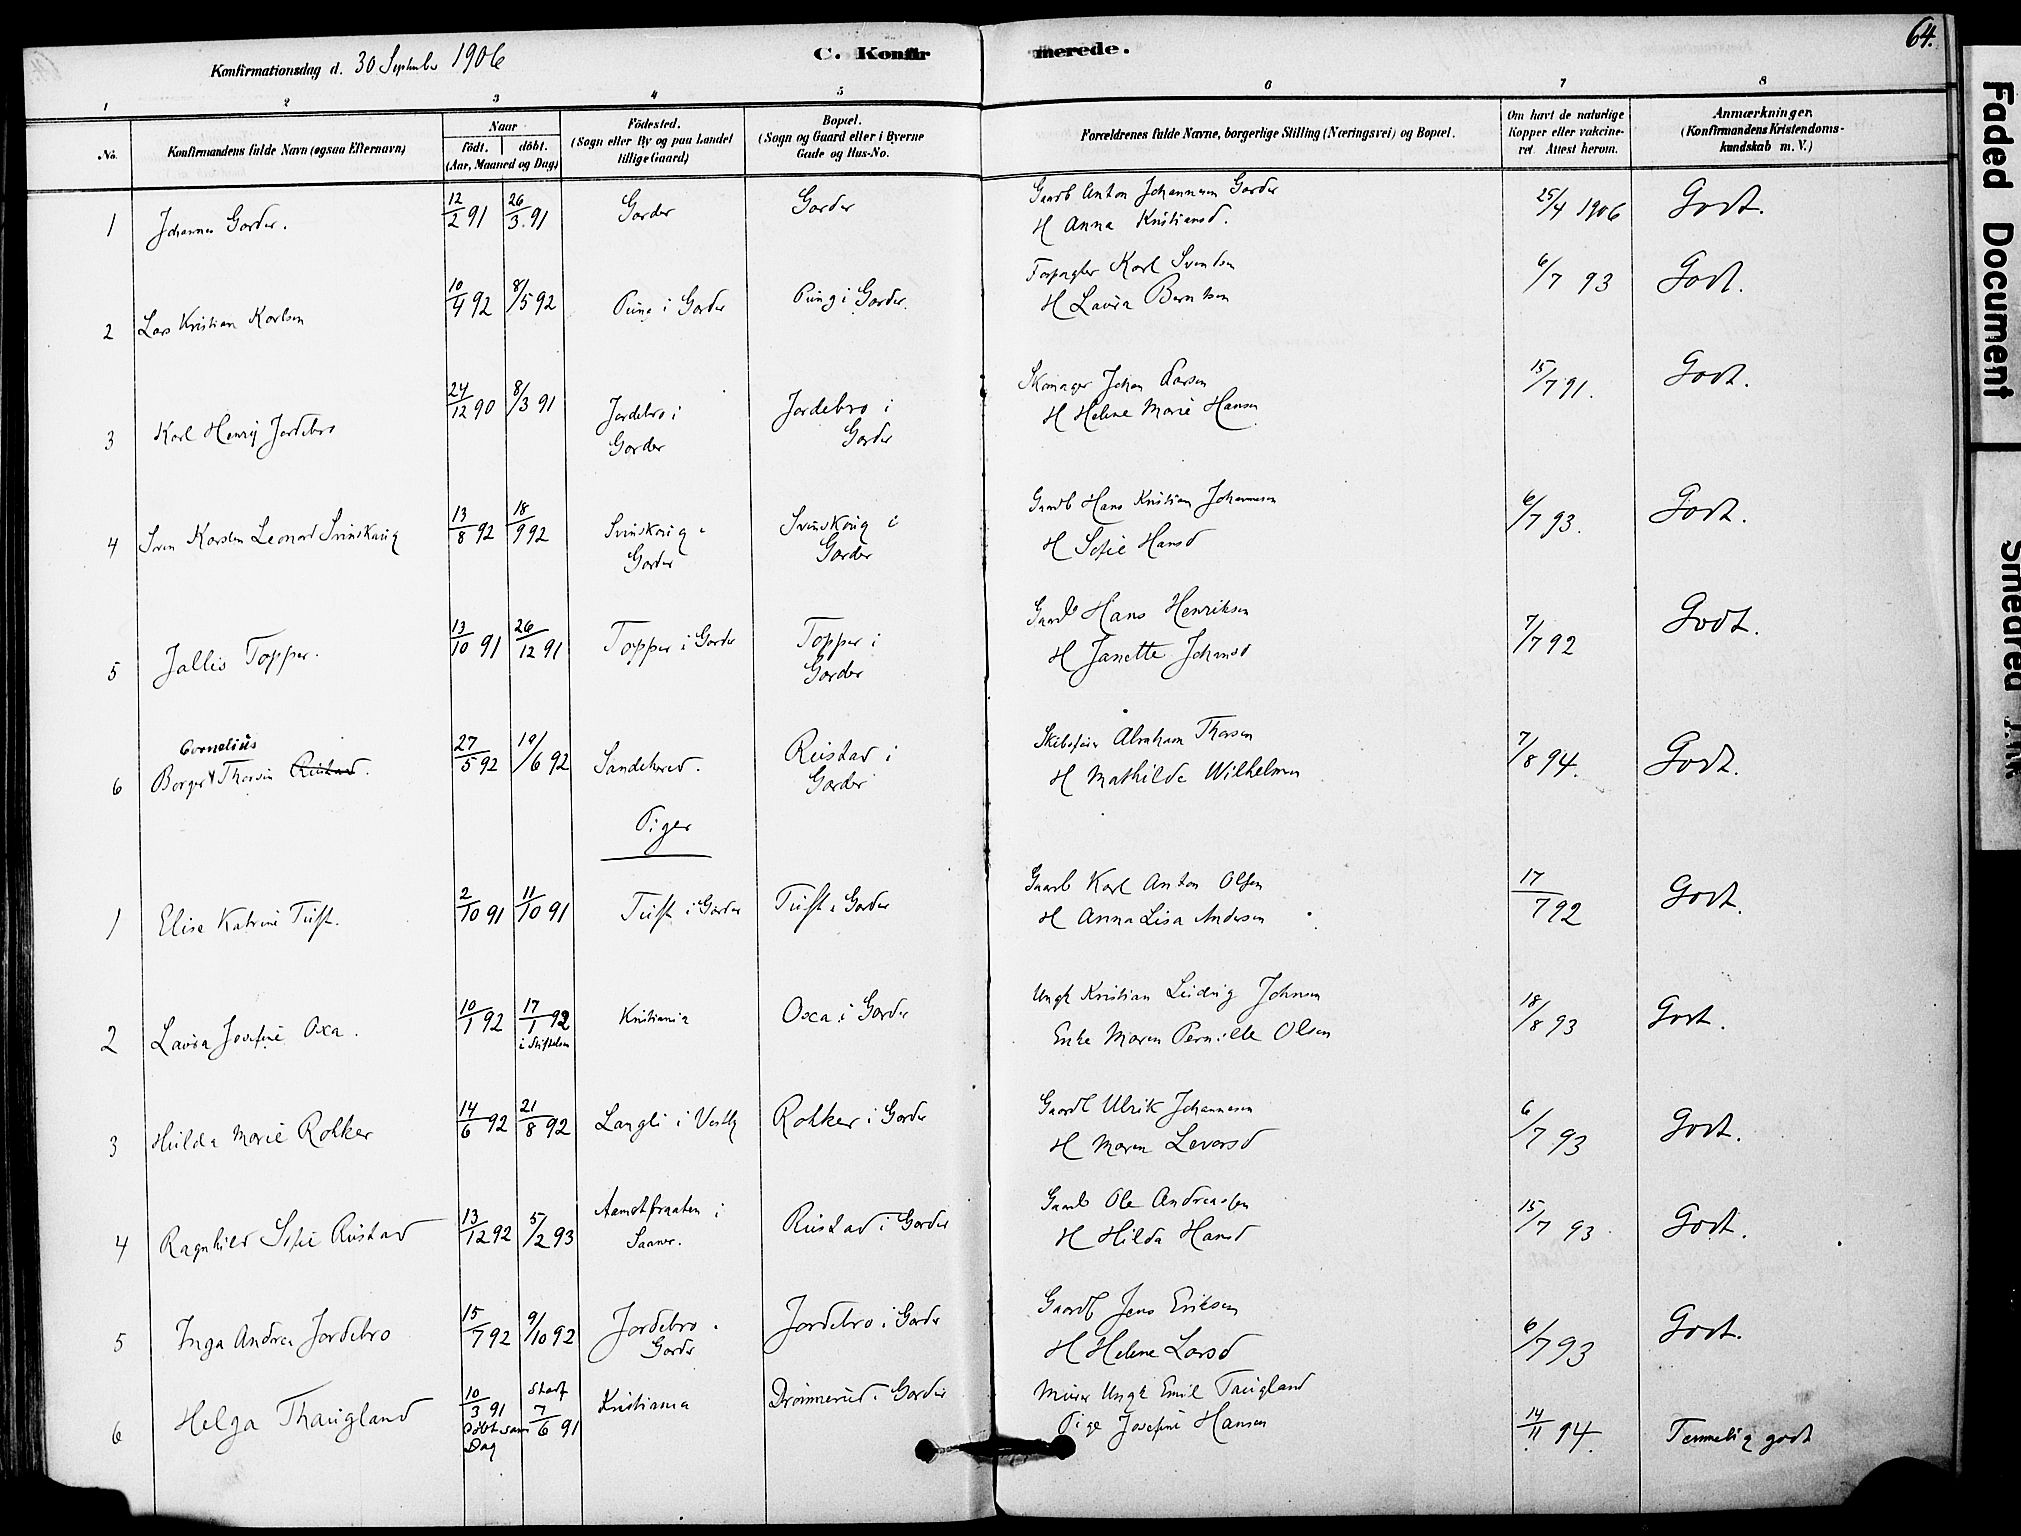 64.
Konfirmationsdag d. 30 September 1906
C. Konfirmerede.
1 2 3 4 5 6 7 8
No. Konfirmandens fulde Navn (ogsaa Efternavn)
Naar födt. döbt. (Aar, Maaned og Dag)
Födested. (Sogn eller By og paa Landet tillige Gaard)
Bopæl. (Sogn og Gaard eller i Byerne Gade og Hus-No.
Forældrenes fulde Navne, borgerlige Stilling (Næringsvei) og Bopæl.
Om havt de naturlige Kopper eller vakcineret. Attest herom.
Anmærkninger. (Konfirmandens Kristendomskundskab m. V.)
1 Johannes Garder. 12/2 91 26/3.91 Garder Garder Gaardb Anton Johannesen Garder 25/4 1906 Godt.
H Anna Kristiansd.
2 Lars Kristian Karlsen 10/4 92 8/5 92 Pung i Garder Pung i Garder. Karl Svendsen 6/7 93 Godt.
H Laura Berntsen
3 Karl Henrij Jordebro 24/12 90 8/3 91 Jordebro i Garder Jordebro i Garder Skomager Johan Larsen 15/7 91. Godt.
H Helene Marie Hansen
4 Sven Karsten Leonard Svinskaug 13/8 92 18/9 92 Svinskaug i Garder Svinskaug i Garder Gaardb Hans Kristian Johannesen 6/7 93. Godt.
H Sofie Hansd
5 Jallis Topper. 13/10 91 26/12 91 Topper i Garder Topper i Garder Gaardb Hans Henriksen 7/7 92 Godt.
H Janette Johansd
Cornelius
6 Borger Thorsen Rustad. 27/5 92 19/6 92 Sandehered. Rustad i Garder Abraham Thorsen 7/8 94. Godt.
H Mathilde Wilhelmsen
Piger
1 Elise Katrine Tuft. 2/10 91 11/10 91 Tuft i Garder Tuft i Garder Gaardb Karl Anton Olsen 17/7 92 Godt.
H Anna Lisa Andersen
2 Laura Josefine Oxa. 10/1 92 17/1 92 i Stiftelsen Kristiania Oxa i Garder Ungk Kristian Ludvig Johnsen 18/8 93 Godt.
Enke Maren Pernille Olsen
3 Hulda Marie Rokker 14/6 92 21/8 92 Langli i Vestby Rokker i Garder Gaardb Ulrik Johannesen 6/7 93 Godt.
H Maren Levorsd
4 Ragnhild Sofie Rustad 13/12 92 5/2 93 Aamotfraaten i Saaner. Rustad i Garder Gaardb Ole Andreassen 15/7 93. Godt.
H Hilda Hansd
5 Inga Andrea Jordebro 15/7 92 9/10 92 Jordebro i Garder Jordebro i Garder Gaardb Jens Eriksen 6/7 93 Godt.
H Helene Larsd
6 Helga Thaugland 10/3 91 Döbt sam Dag Stadf 7/6 91 Kristiania Drömmerud i Garder Murer Ungk Emil Taugland 14/11 94. Temmelig godt
Pige Josefine Hansen
Faded Document
Smeared